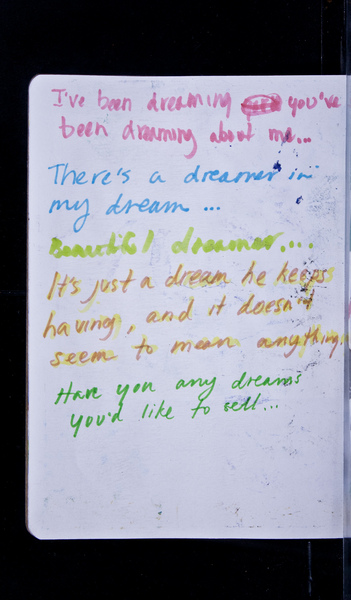 I've been dreaming you've
been dreaming about me...
There's a dreamer in
my dream ...
Beautiful dreamer....
It's just a dream he keeps
having, and it doesn't
seem to mean anything.
Have you any dreams
you'd like to sell...